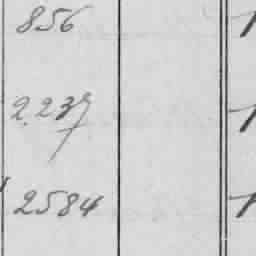 856
2.237
2584